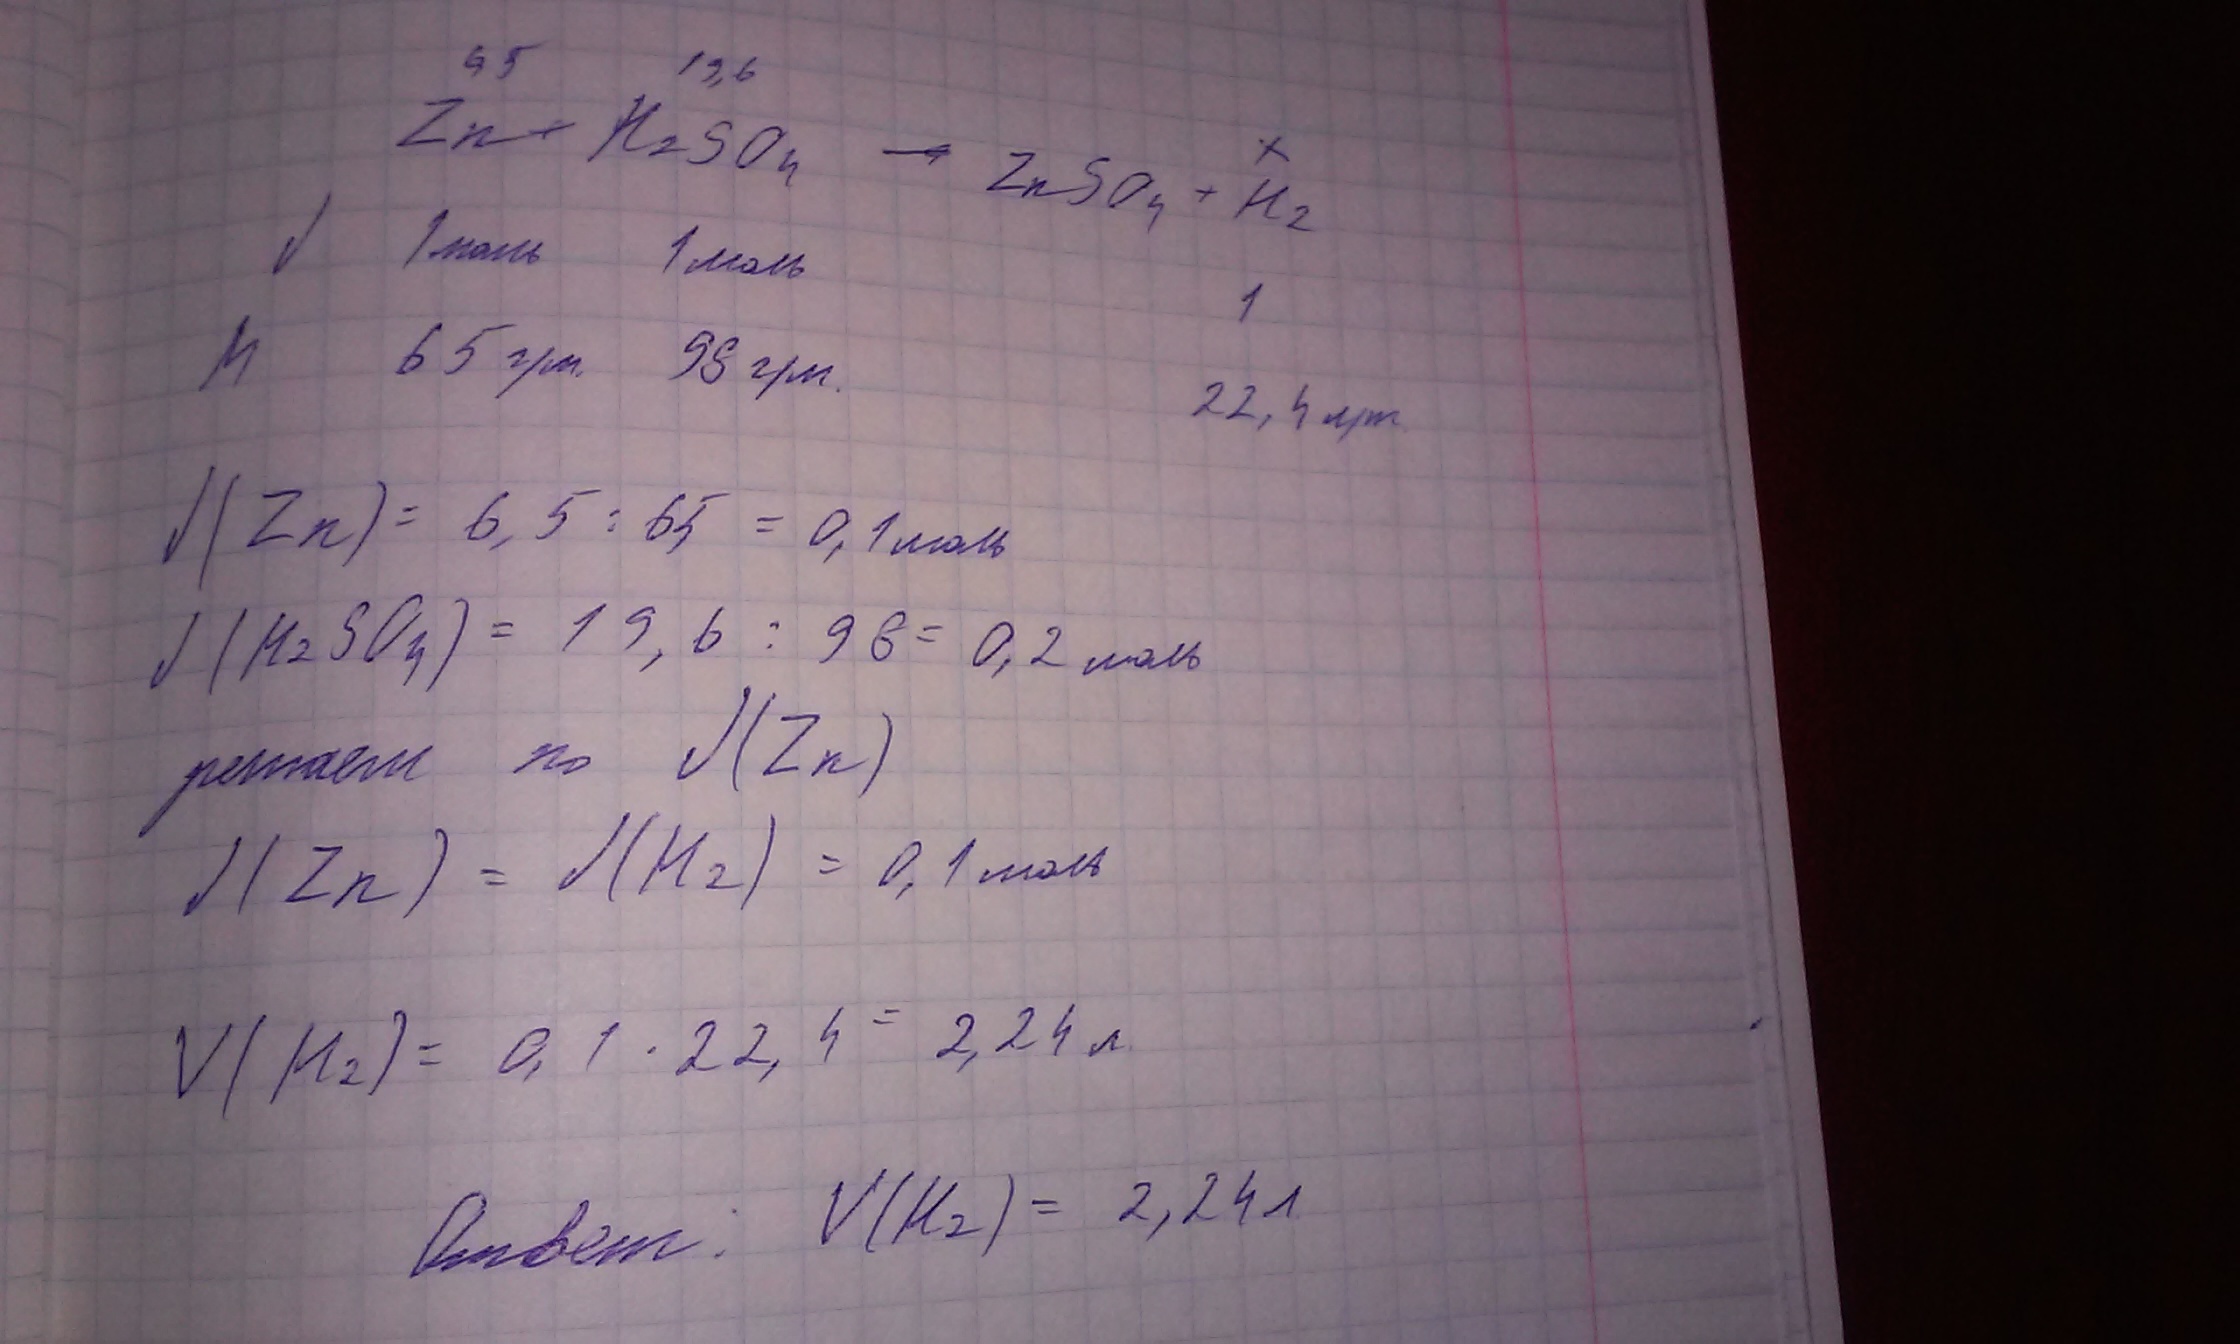 6,5 19,6 x
Zn + H2SO4 → ZnSO4 + H2
ν 1 моль 1 моль 1
M 65 грм. 98 грм. 22,4 лит.
ν(Zn) = 6,5 : 65 = 0,1 моль
ν(H2SO4) = 19,6 : 98 = 0,2 моль
решаем по ν(Zn)
ν(Zn) = ν(H2) = 0,1 моль
V(H2) = 0,1 · 22,4 = 2,24 л.
Ответ: V(H2) = 2,24 л